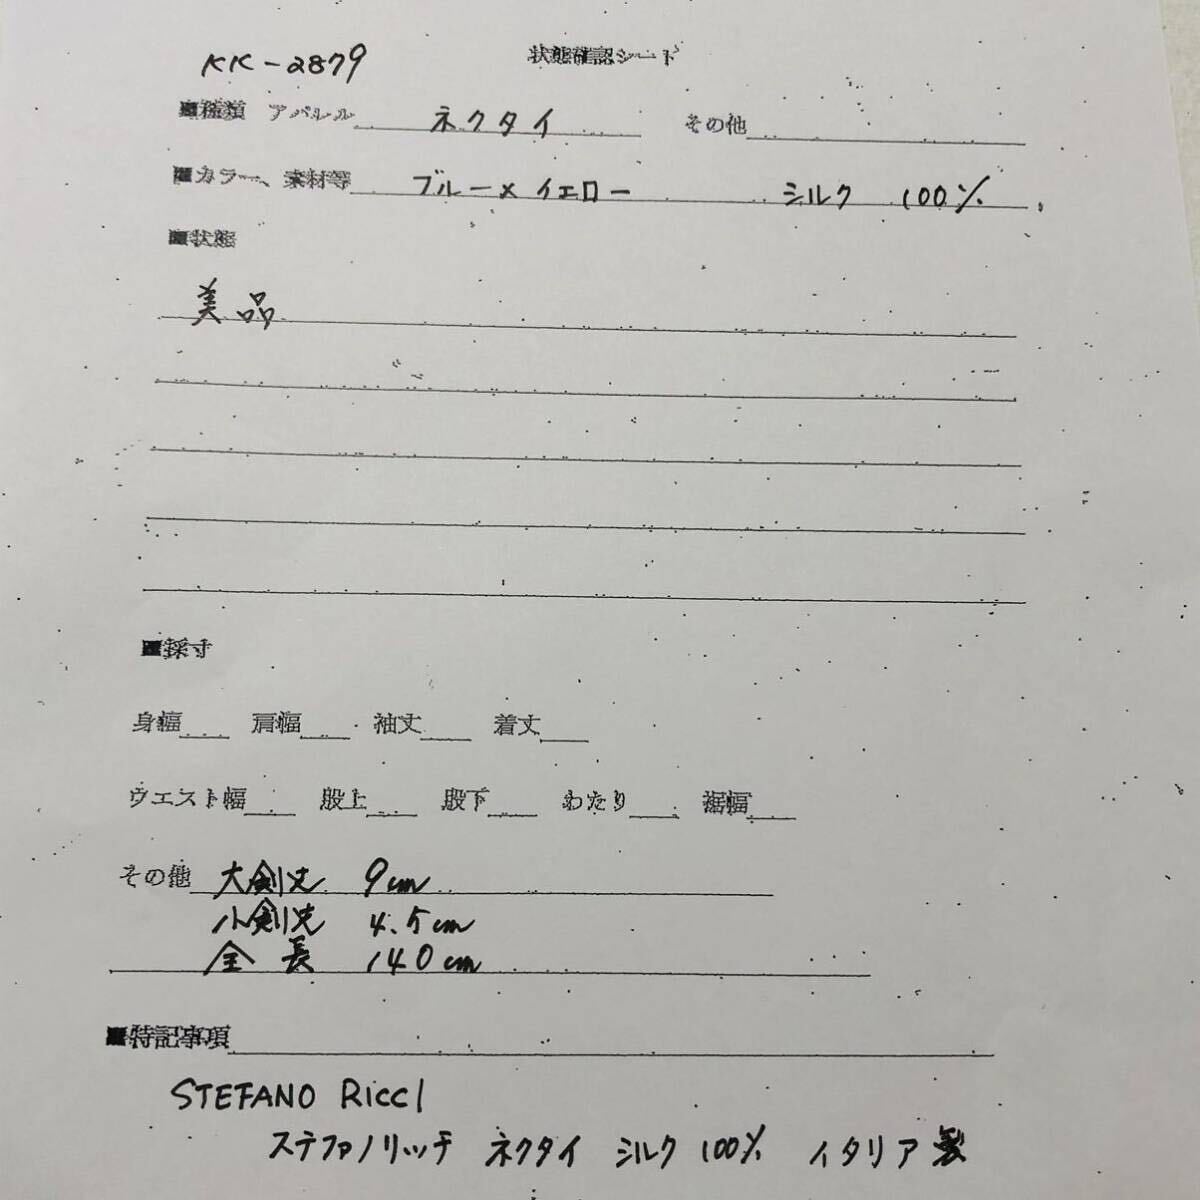 KK-2879 状態確認シート
■種類 アパレル ネクタイ その他
■カラー、素材等 ブルー×イエロー シルク 100%
■状態
美品
■採寸
身幅 肩幅 袖丈 着丈
ウエスト幅 股上 股下 わたり 裾幅
その他 大剣丈 9cm
小剣丈 4.5cm
全長 140cm
■特記事項
STEFANO RiccI
ステファノリッチ ネクタイ シルク 100% イタリア製